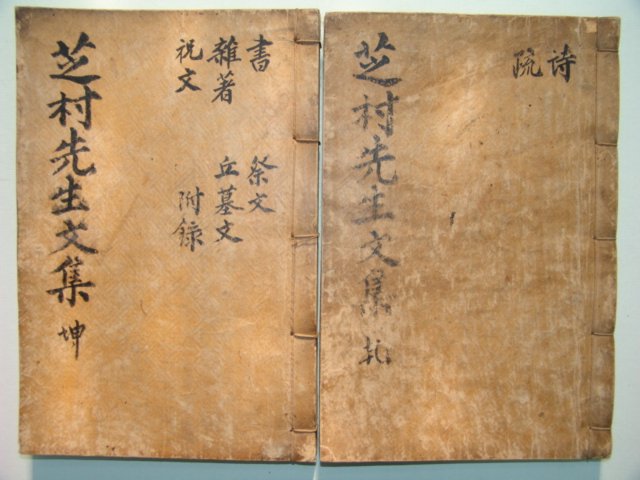 詩
疏
芝村先生文集 乹
書 祭文
雜著 丘墓文
祝文 附錄
芝村先生文集 坤